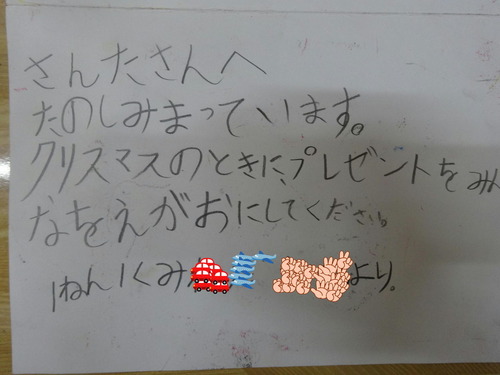 さんたさんへ
たのしみまっています。
クリスマスのときに、プレゼントをみん
なちをえがおにしてください。
1ねん1くみ より。